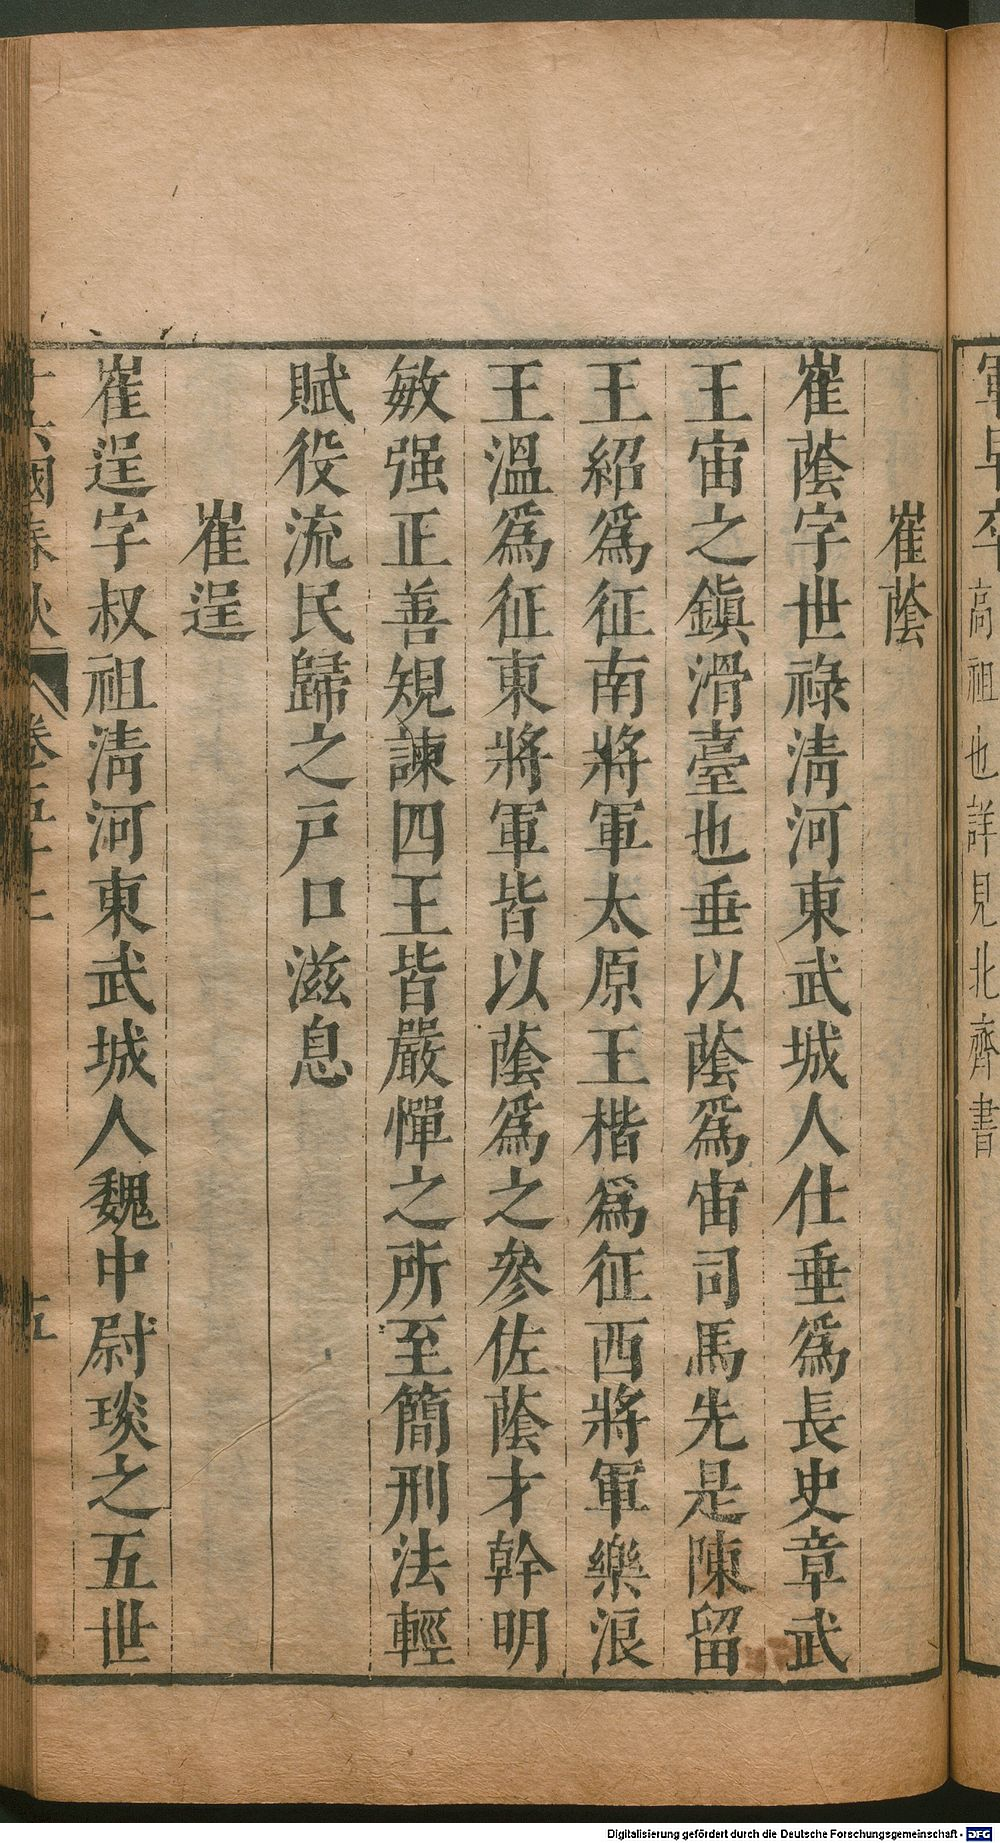 軍早卒高祖也詳見北齊書
崔蔭
崔蔭字世祿淸河東武城人仕垂爲長史章武
王宙之鎭滑臺也垂以蔭爲宙司馬先是陳留
王紹爲征南將軍太原王楷爲征西將軍樂浪
王溫爲征東將軍皆以蔭爲之參佐蔭才幹明
敏强正善規諫四王皆嚴憚之所至簡刑法輕
賦役流民歸之戸口滋息
崔逞
崔逞字叔祖淸河東武城人魏中尉琰之五世
國春秋 卷五十 五
Digitalisierung gefördert durch die Deutsche Forschungsgemeinschaft - DFG